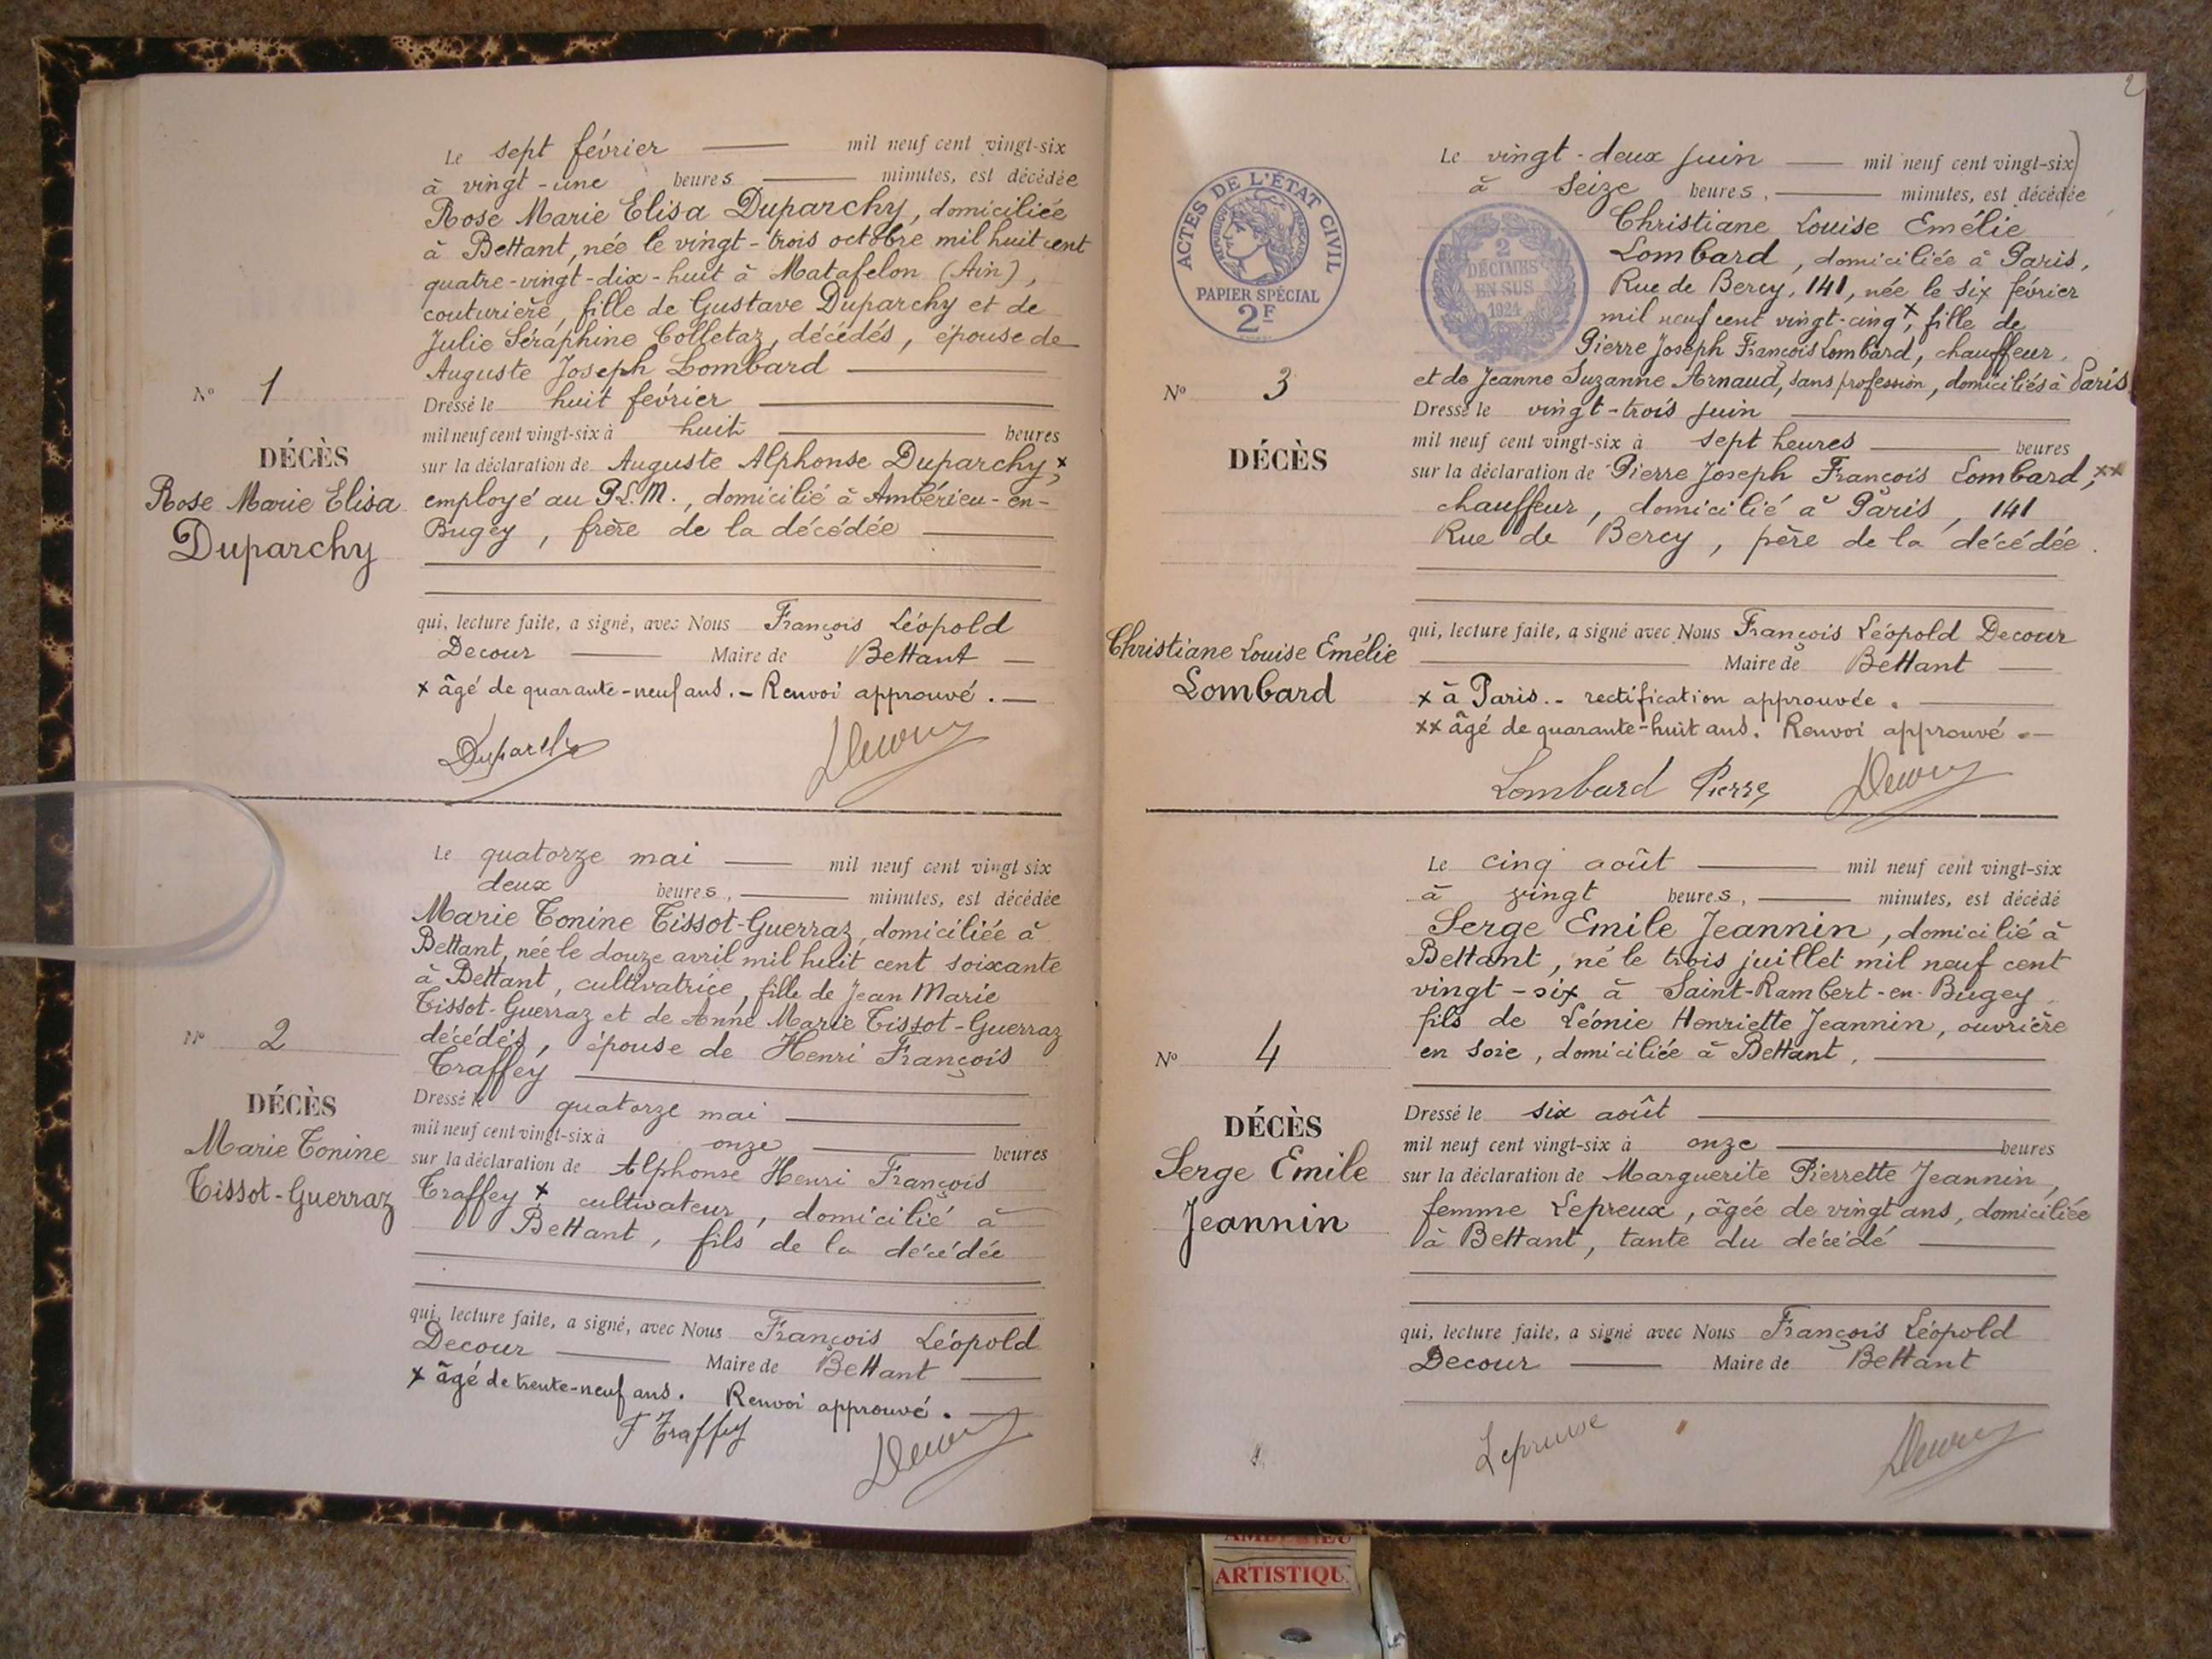 Le sept février mil neuf cent vingt-six
à vingt-une heures minutes, est décédée
Rose Marie Elisa Duparchy, domiciliée
à Bettant, née le vingt-trois octobre mil huit cent
quatre-vingt-dix-huit à Matafelon (Ain),
couturière, fille de Gustave Duparchy et de
Julie Séraphine Colletaz, décédés, épouse de
Auguste Joseph Lombard
N° 1
Dressé le huit février
mil neuf cent vingt-six à huit heures
DÉCÈS
sur la déclaration de Auguste Alphonse Duparchy, x
Rose Marie Elisa
employé au P.L.M., domicilié à Ambérieu-en-
Duparchy
Bugey, frère de la décédée
qui, lecture faite, a signé, avec Nous François Léopold
Decour Maire de Bettant
x âgé de quarante-neuf ans. - Renvoi approuvé.
Duparchy Decour
Le quatorze mai mil neuf cent vingt six
deux heures, minutes, est décédée
Marie Tonine Tissot-Guerraz, domiciliée à
Bettant, née le douze avril mil huit cent soixante
à Bettant, cultivatrice, fille de Jean Marie
Tissot-Guerraz et de Anne Marie Tissot-Guerraz
N° 2
décédés, épouse de Henri François
Traffey
DÉCÈS
Dressé le quatorze mai
mil neuf cent vingt-six à onze heures
Marie Tonine
sur la déclaration de Alphonse Henri François
Tissot-Guerraz
Traffey x cultivateur, domicilié à
Bettant, fils de la décédée
qui, lecture faite, a signé, avec Nous François Léopold
Decour Maire de Bettant
x âgé de trente-neuf ans. Renvoi approuvé.
F Traffey Decour
2
ACTES DE L'ÉTAT CIVIL
RÉPUBLIQUE FRANÇAISE
PAPIER SPÉCIAL
2F
2
DÉCIMES
EN SUS
1924
Le vingt-deux juin mil neuf cent vingt-six)
à seize heures, minutes, est décédée
Christiane Louise Emélie
Lombard, domiciliée à Paris,
Rue de Bercy, 141, née le six février
mil neuf cent vingt-cinq x, fille de
Pierre Joseph François Lombard, chauffeur,
et de Jeanne Suzanne Arnaud, sans profession, domiciliés à Paris
N° 3
Dressé le vingt-trois juin
mil neuf cent vingt-six à sept heures heures
DÉCÈS
sur la déclaration de Pierre Joseph François Lombard, xx
chauffeur, domicilié à Paris, 141
Rue de Bercy, père de la décédée.
Christiane Louise Emélie
Lombard
qui, lecture faite, a signé avec Nous François Léopold Decour
Maire de Bettant
x à Paris. - rectification approuvée.
xx âgé de quarante-huit ans. Renvoi approuvé.
Lombard Pierre Decour
Le cinq août mil neuf cent vingt-six
à vingt heures, minutes, est décédé
Serge Emile Jeannin, domicilié à
Bettant, né le trois juillet mil neuf cent
vingt-six à Saint-Rambert-en-Bugey
fils de Léonie Henriette Jeannin, ouvrière
en soie, domiciliée à Bettant.
N° 4
DÉCÈS
Dressé le six août
mil neuf cent vingt-six à onze heures
Serge Emile
sur la déclaration de Marguerite Pierrette Jeannin,
Jeannin
femme Lepreux, âgée de vingt ans, domiciliée
à Bettant, tante du décédé
qui, lecture faite, a signé avec Nous François Léopold
Decour Maire de Bettant
Decour
ARTISTIQU